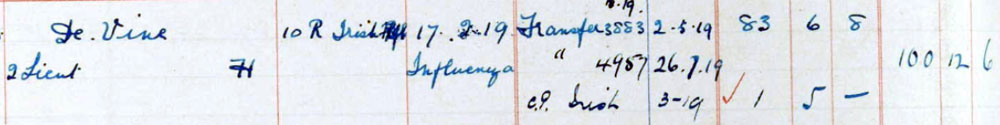 De. Vine 10 R Irish Rif 17. 2. 19 Transfer 3883 2-5-19 83 6 8
2 Lieut H Influenza " 4957 26.7.19 100 12 6
c.p. Irish 3-19 ✓ 1 5 —